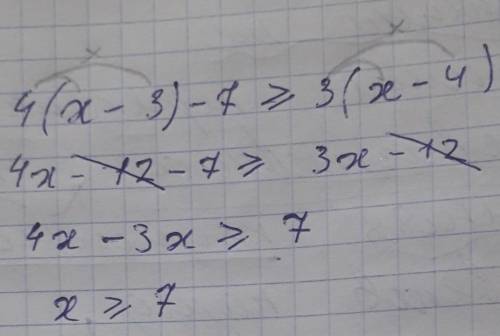 4(x - 3) - 7 ⩾ 3(x - 4)
4x - 12 - 7 ⩾ 3x - 12
4x - 3x ⩾ 7
x ⩾ 7